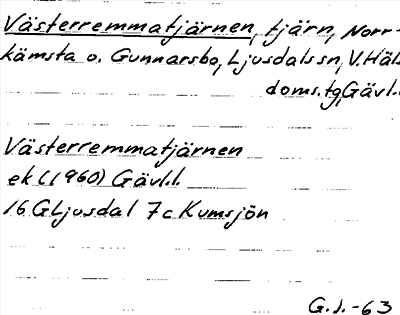 Västerremmatjärnen, tjärn, Norr-
kämsta o. Gunnarsbo, Ljusdals sn, V. Häls
doms. tg, Gävl.
Västerremmatjärnen
ek (1960) Gävl.l.
16 G Ljusdal 7c Kumsjön
G.J.-63